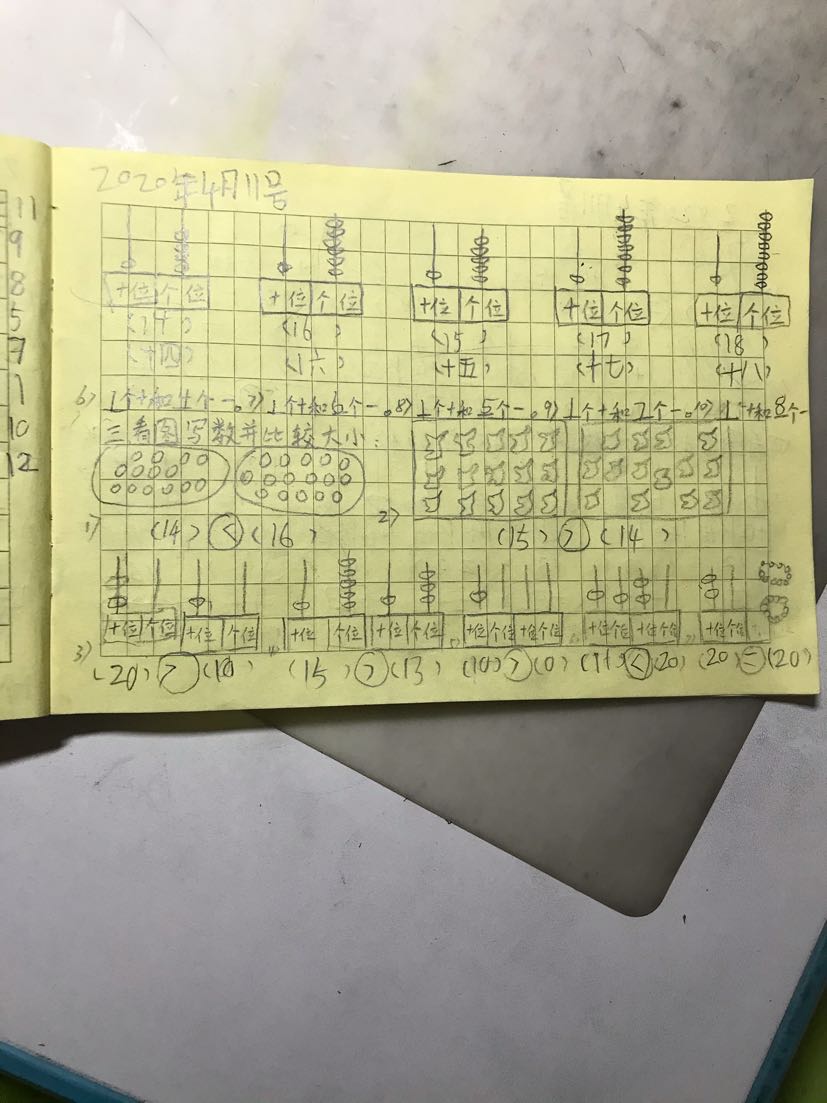 2020年4月11号
11
9
8
5
7
1
10
12
十位 个位 十位 个位 十位 个位 十位 个位 十位 个位
(14) (16) (15) (17) (18)
(十四) (十六) (十五) (十七) (十八)
6) 1个十和4个一。7) 1个十和6个一。8) 1个十和5个一。9) 1个十和7个一。10) 1个十和8个一
三看图写数并比较大小:
1) (14) < (16) 2) (15) > (14)
十位 个位 十位 个位 十位 个位 十位 个位 十位 个位 十位 个位 十位 个位 十位 个位 十位 个位
3) (20) > (10) (15) > (13) (10) > (0) (11) < (20) (20) = (20)